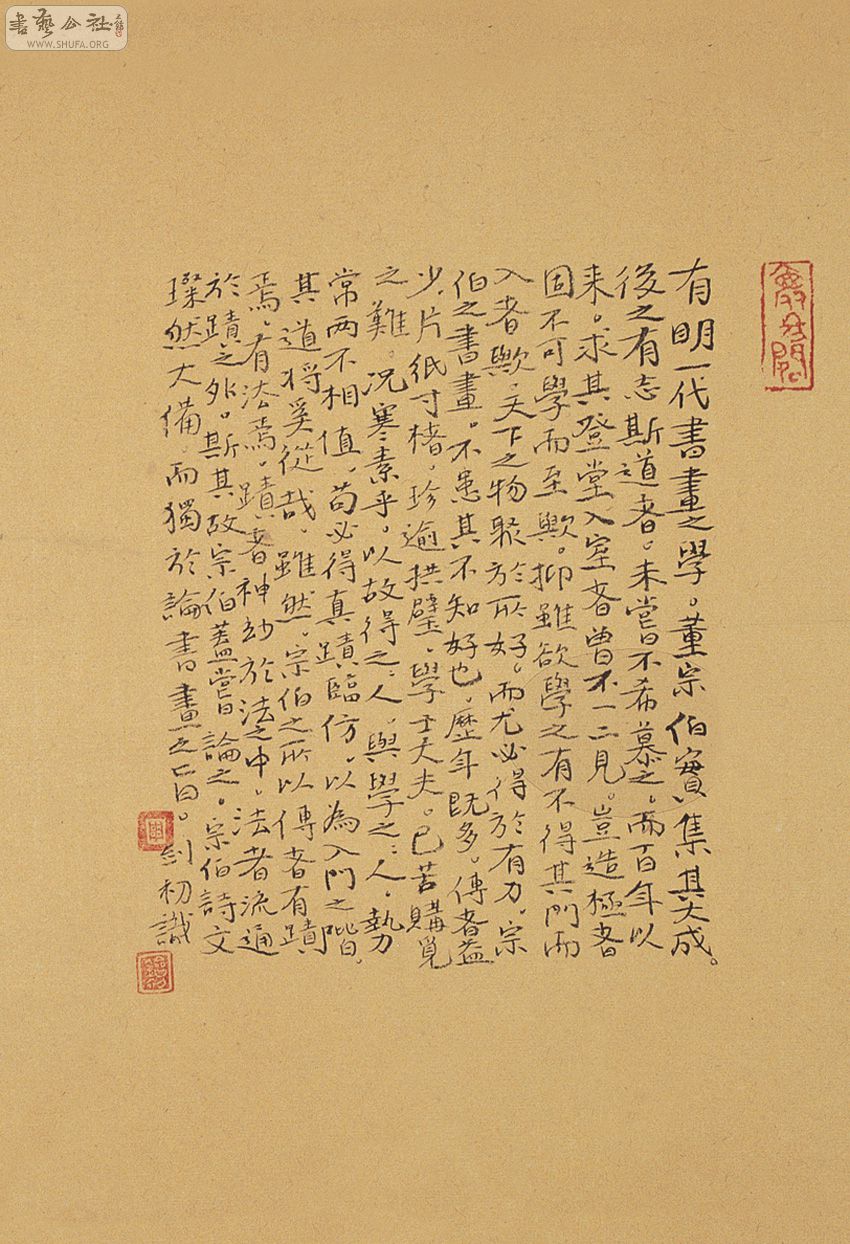 書藝公社
WWW.SHUFA.ORG
有明一代書畫之學。董宗伯實集其大成。
後之有志斯道者。未嘗不希慕之。而百年以
来。求其登堂入室者曾不一二見。豈造極者
固不可學而至歟。抑雖欲學之有不得其門而
入者歟。天下之物聚於所好。而尤必得於有力。宗
伯之書畫。不患其不知好也。歷年既多。傳者益
少。片紙寸楮。珍逾拱璧。學士大夫。已苦購覓
之難。况寒素乎。以故得之之人。與學之之人。勢
常两不相值。苟必得真蹟臨仿。以為入門之階。
其道将奚從哉。雖然。宗伯之所以傳者有蹟
焉。有法焉。蹟著神妙於法之中。法者流通
於蹟之外。斯其故宗伯蓋嘗論之。宗伯詩文
璨然大備。而獨於論書畫之㫖。劍初識